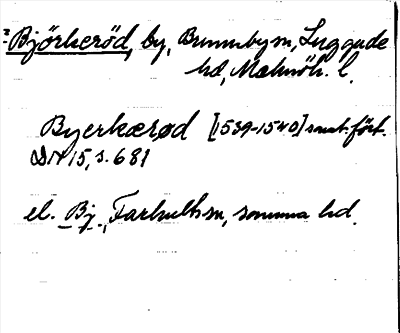 Björkeröd, by, Brunnby sn, Luggude
hd, Malmöh. l.
Byerkærød [1539-1540] samt. fört.
DN 15, s. 681
el. Bj., Farhults sn, samma hd.